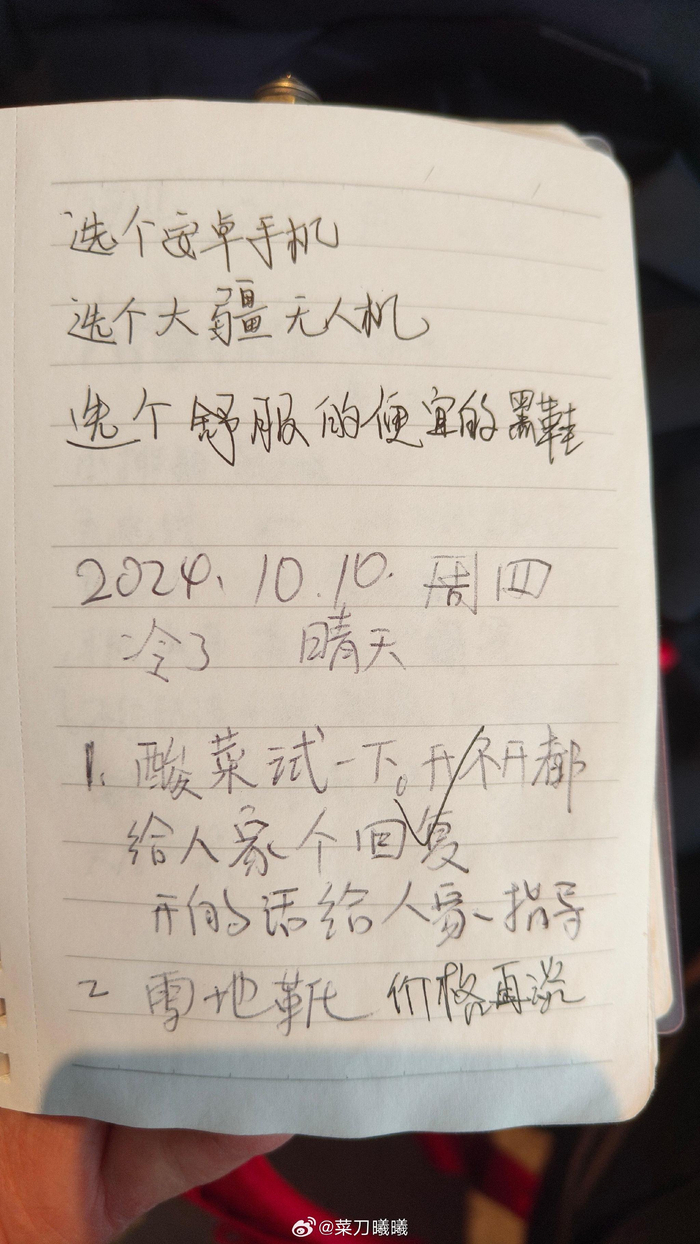 选个安卓手机
选个大疆无人机
选个舒服的便宜的黑鞋
2024.10.10.周四
冷了 晴天
1. 酸菜试一下。开不开都
给人家个回复
开的话给人家指导
2 雪地靴 价格再说
@菜刀曦曦